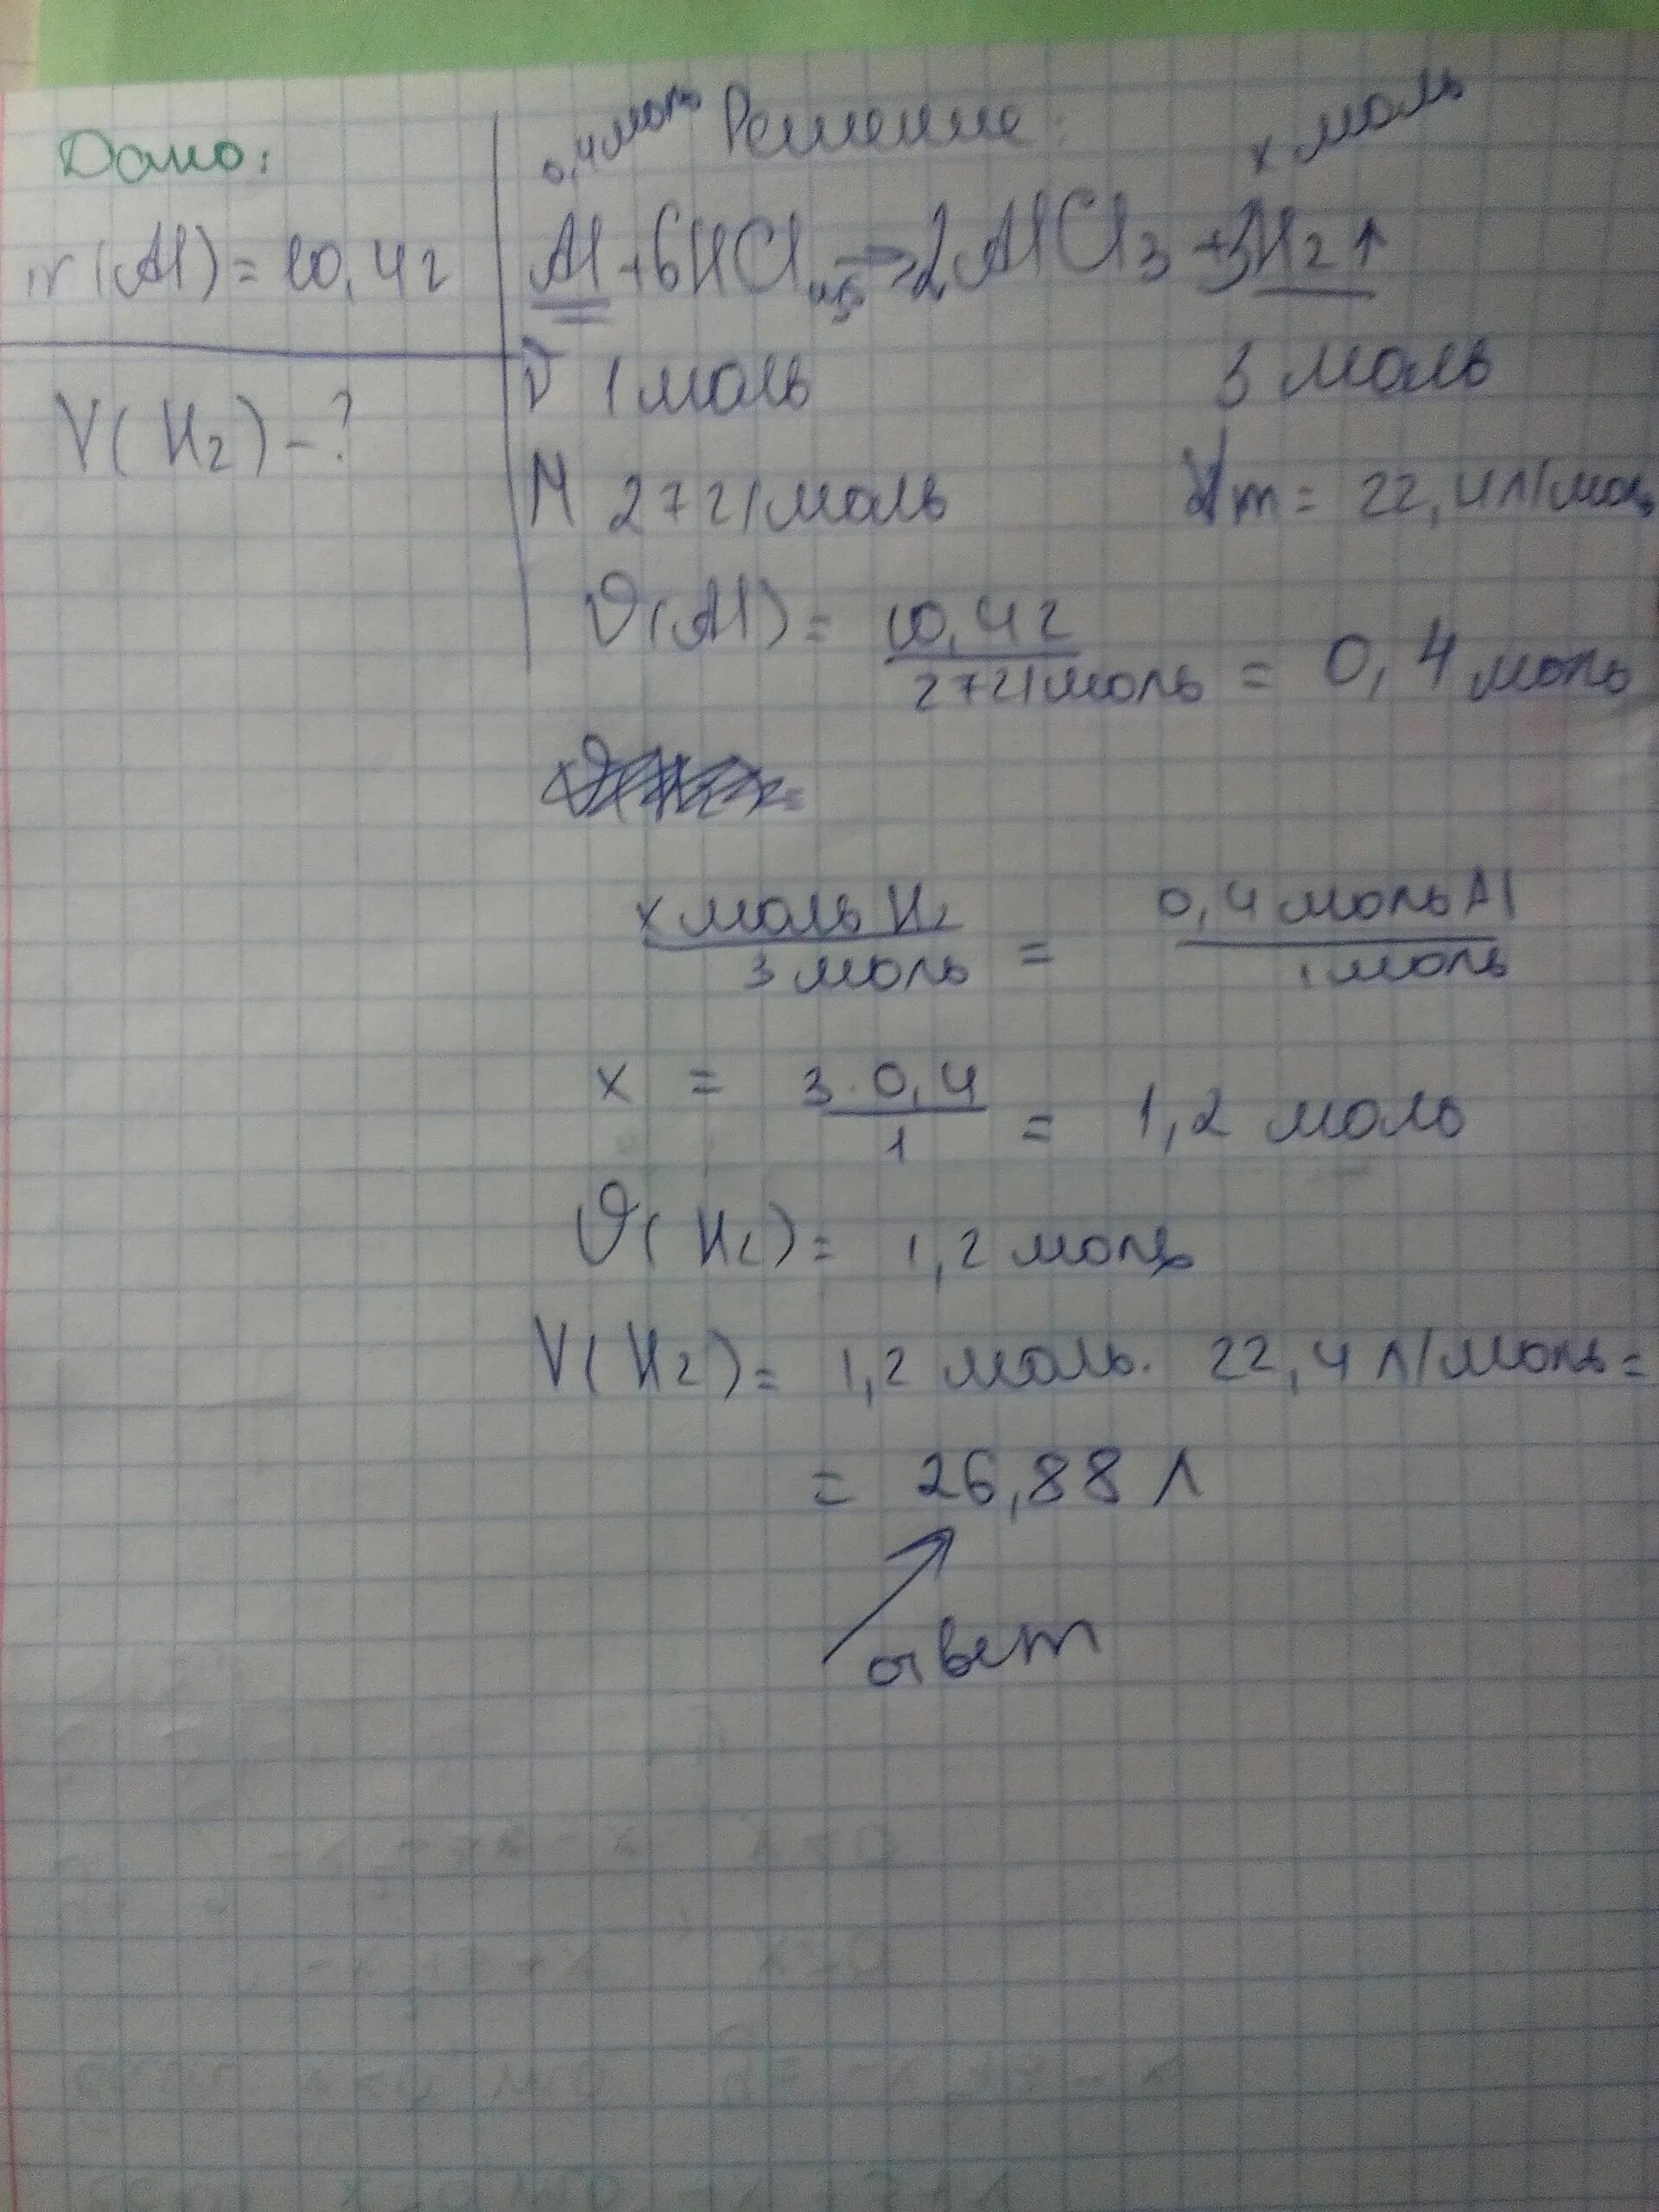 Дано:
m(Al) = 10,4г
V(H₂) - ?
Решение:
0,4моль
x моль
Al + 6HCl → 2AlCl₃ + 3H₂↑
ν 1 моль 3 моль
M 27г/моль Vm = 22,4л/моль
ν(Al) = 10,4г / 27г/моль = 0,4 моль
x моль H₂ / 3 моль = 0,4 моль Al / 1 моль
x = 3·0,4 / 1 = 1,2 моль
ν(H₂) = 1,2 моль
V(H₂) = 1,2 моль · 22,4 л/моль =
= 26,88 л
ответ